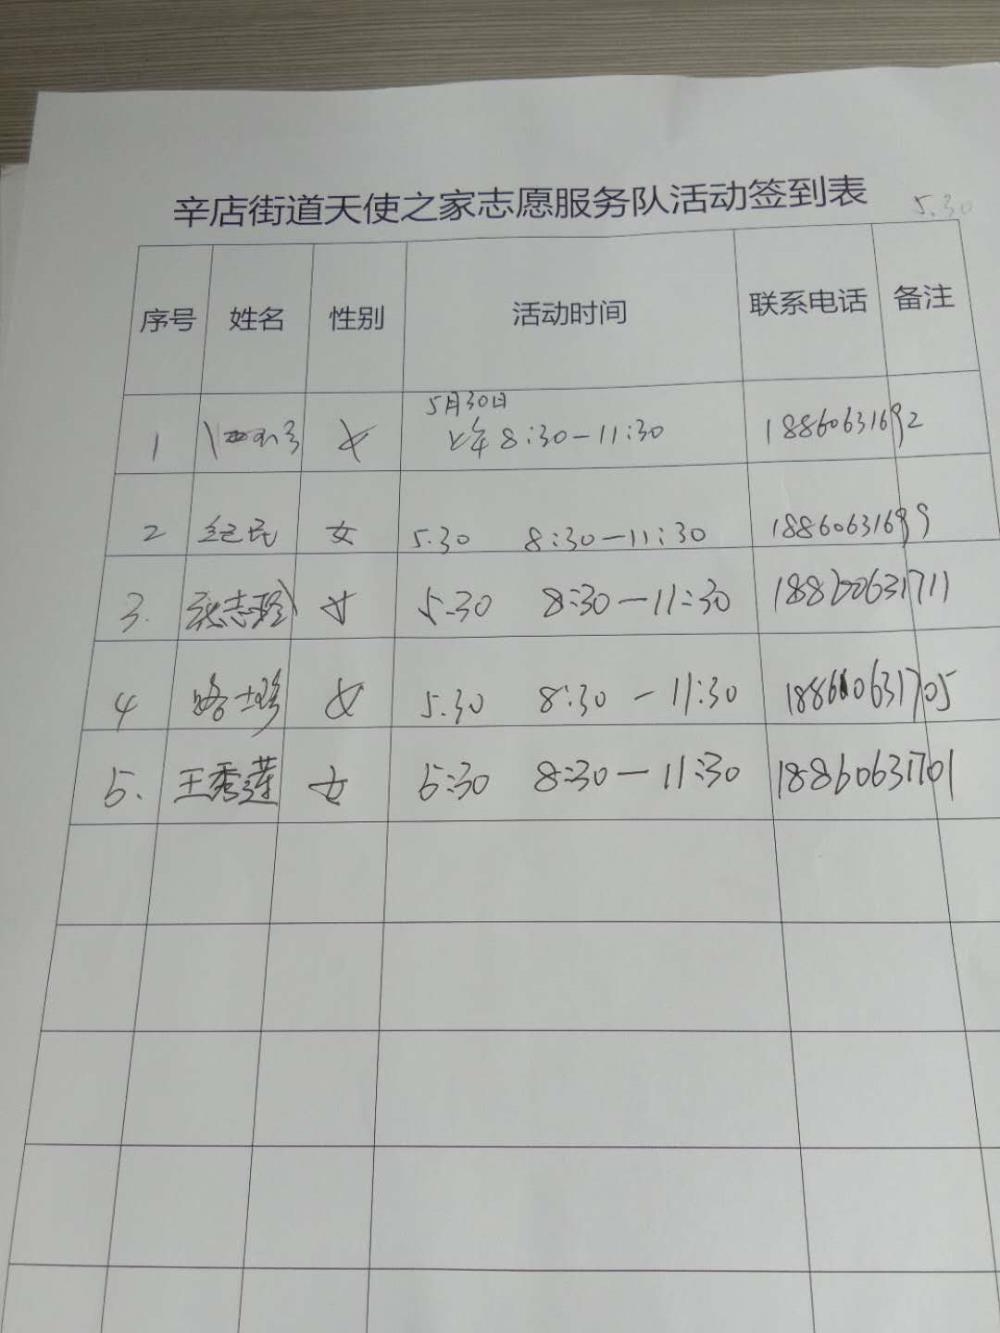 辛店街道天使之家志愿服务队活动签到表 5.30
序号 姓名 性别 活动时间 联系电话 备注
5月30日
1 女 上午 8:30-11:30 18860631692
2 纪民 女 5.30 8:30-11:30 18860631699
3. 张志玲 女 5.30 8:30-11:30 18860631711
4 女 5.30 8:30-11:30 18860631705
5. 王秀莲 女 5:30 8:30-11:30 18860631701